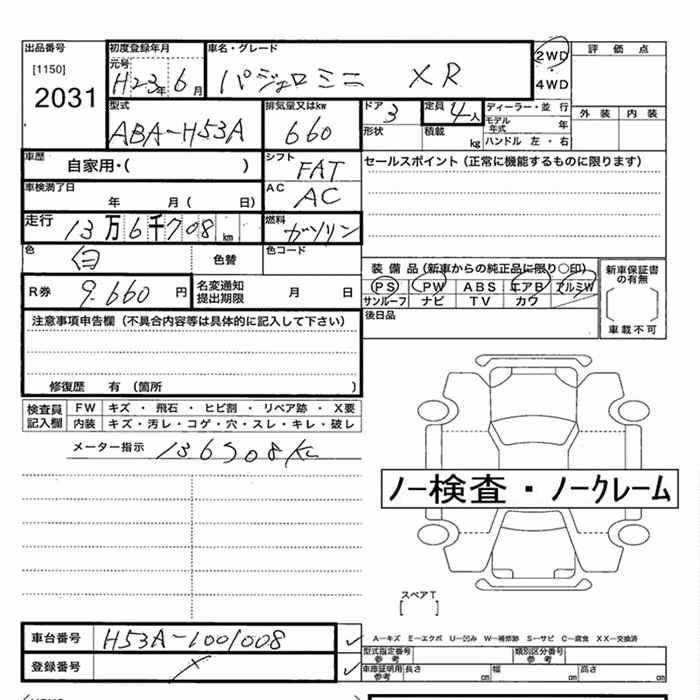 出品番号 初度登録年月 車名・グレード 2WD 評価点
[1150] 元号
2031 H23年 6月 パジェロミニ XR 4WD
型式 排気量又はkw ドア 定員 ディーラー・並行 外装 内装
ABA-H53A 660 3 4人 モデル年式 年
形状 積載 kg ハンドル 左・右
車歴 自家用・( ) シフト FAT セールスポイント(正常に機能するものに限ります)
車検満了日 年 月( 日) AC AC
走行 13万6千708km 燃料 ガソリン
色 白 色替 色コード 装備品(新車からの純正品に限り○印) 新車保証書の有無
R券 9.660円 名変通知提出期限 月 日 PS PW ABS エアB アルミW
サンルーフ ナビ TV カワ
注意事項申告欄(不具合内容等は具体的に記入して下さい) 後日品 車載不可
修復歴 有 (箇所 )
検査員 FW キズ・飛石・ヒビ割・リペア跡・X要
記入欄 内装 キズ・汚レ・コゲ・穴・スレ・キレ・破レ
メーター指示
ノー検査・ノークレーム
スペアT
[ ]
車台番号 H53A-1001008 A-キズ E-エクボ U-凹み W-補修跡 S-サビ C-腐食 XX-交換済
型式指定番号 参考 類別区分番号 参考
登録番号 車庫証明用 参考 長さ cm 幅 cm 高さ cm